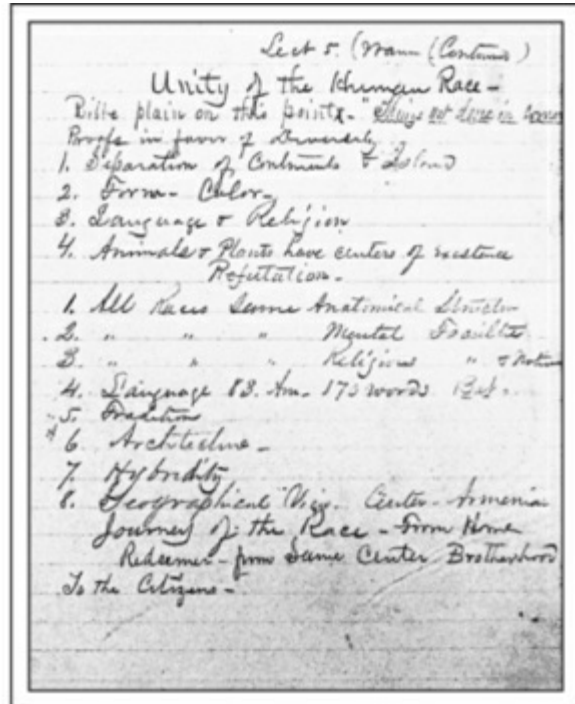 Lect 5. (Man (Continued)
Unity of the Human Race -
Bible plain on this point -
Proofs in favor of Diversity.
1. Separation of Continents & Island
2. Form - Color -
3. Language & Religion
4. Animals & Plants have centers of existence
Refutation -
1. All Races Same Anatomical Structure
2. " " " Mental Faculties
3 " " " Religious " &
4. Language 83. Am. 173 words
5. Traditions
6. Architecture -
7. Hybridity
8. Geographical View. Center - Armenia
Journey of the Race - From Home
Redeemer - from Same Center Brotherhood
To the Citizens -